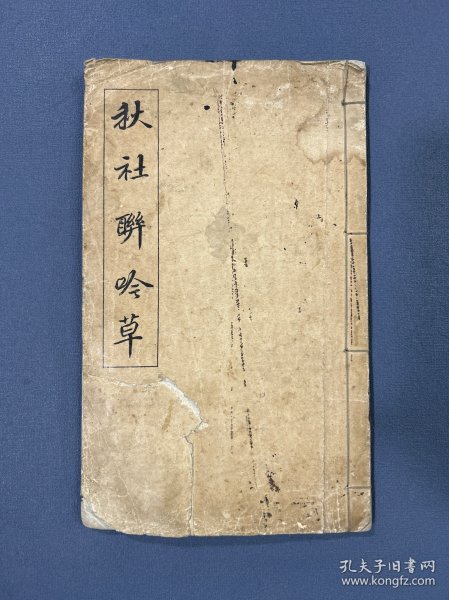 秋社聯吟草
孔夫子旧书网
www.kongfz.com